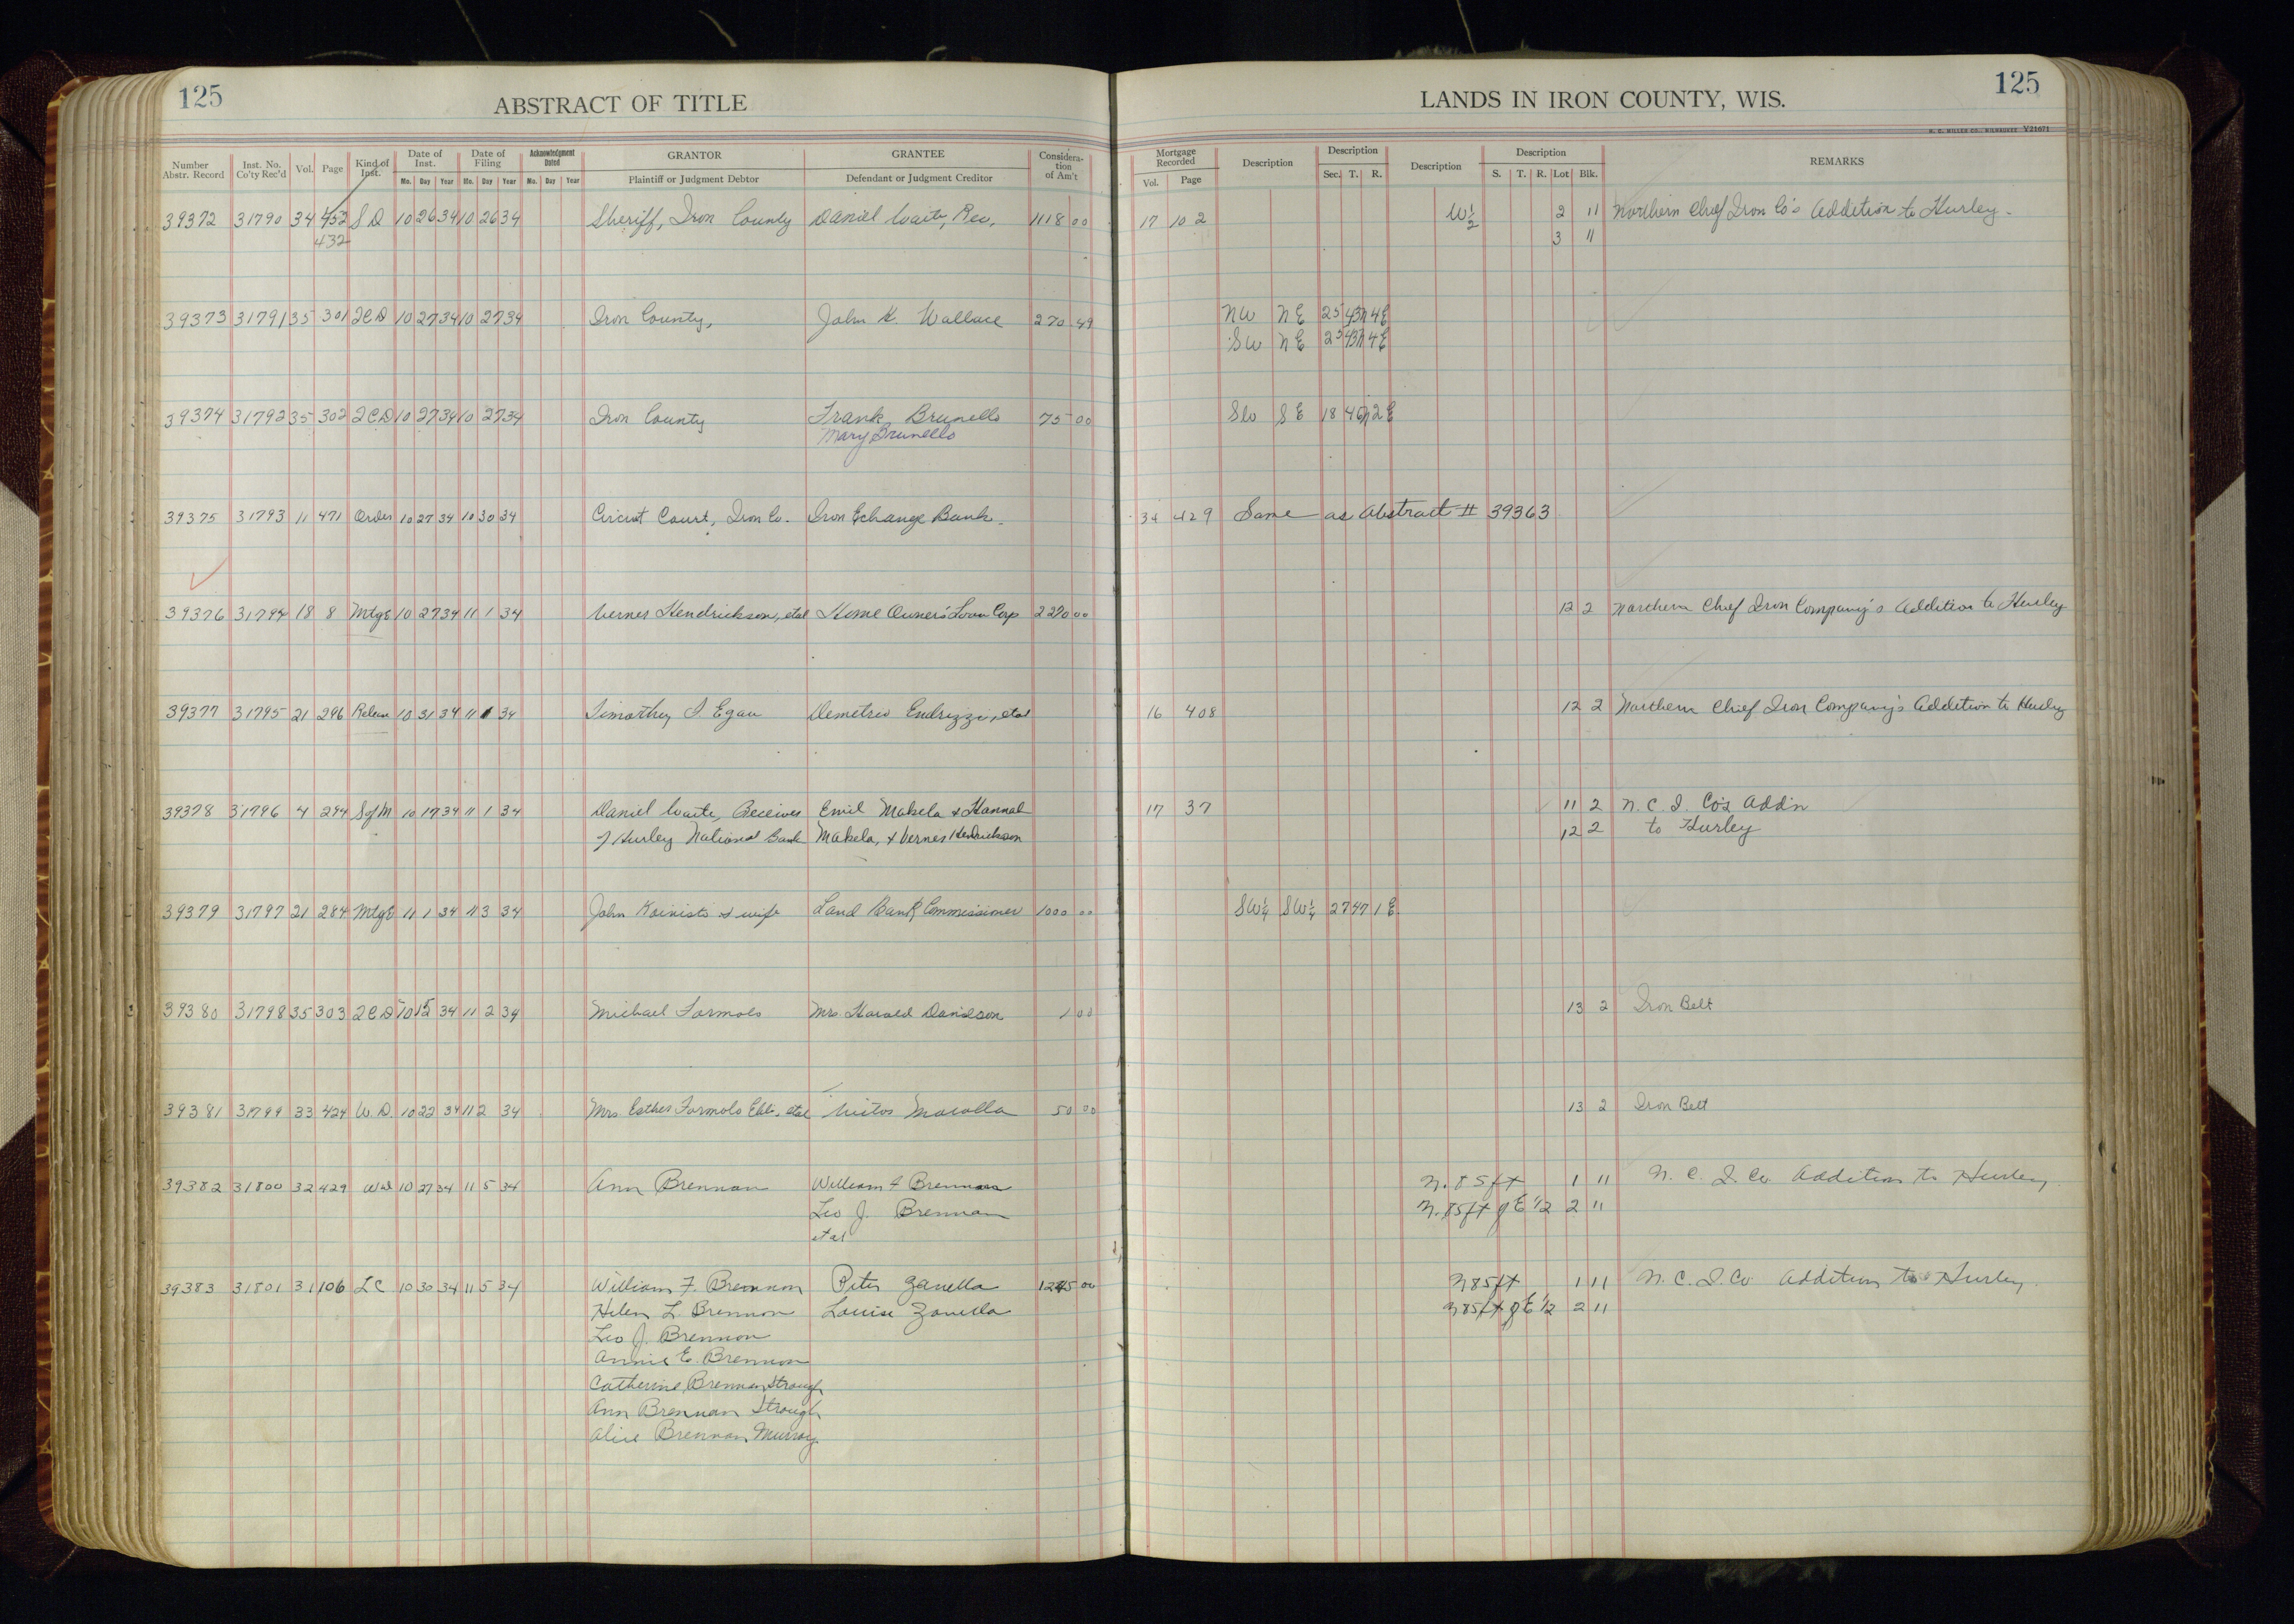 125
ABSTRACT OF TITLE
LANDS IN IRON COUNTY, WIS.
125
H. C. MILLER CO., MILWAUKEE Y21671
Number Abstr. Record Inst. No. Co'ty Rec'd Vol. Page Kind of Inst. Date of Inst. Mo. Day Year Date of Filing Mo. Day Year Acknowledgment Dated Mo. Day Year GRANTOR Plaintiff or Judgment Debtor GRANTEE Defendant or Judgment Creditor Consideration of Am't Mortgage Recorded Vol. Page Description Description Sec. T. R. Description Description S. T. R. Lot Blk. REMARKS
39372 31790 34 452 S D 10 26 34 10 26 34 Sheriff, Iron County Daniel Waite, Rec. 1118 00 17 102 W½ 2 11 Northern Chief Iron Co's Addition to Hurley.
432 3 11
39373 31791 35 301 2CD 10 27 34 10 27 34 Iron County, John K. Wallace 270 49 NW NE 25 43N 4E
SW NE 25 43N 4E
39374 31792 35 302 2CD 10 27 34 10 27 34 Iron County Frank Brunello 75 00 SW SE 18 46N 2E
Mary Brunello
39375 31793 11 471 Order 10 27 34 10 30 34 Circuit Court, Iron Co. Iron Echange Bank. 34 429 Same as Abstract # 39363
39376 31794 18 8 MtgE 10 27 34 11 1 34 Verner Hendrickson, etal Home Owners' Loan Corp 2220 00 12 2 Northern Chief Iron Company's Addition to Hurley
39377 31795 21 296 Release 10 31 34 11 1 34 Timorthy J. Egan Demetrio Endrizzi, etal 16 408 12 2 Northern Chief Iron Company's Addition to Hurley
39378 31796 4 294 SofM 10 17 34 11 1 34 Daniel Waite, Receiver Emil Makela & Hannah 17 37 11 2 N. C. I. Co's Add'n
of Hurley National Bank Makela, & Verner Hendrickson 12 2 to Hurley
39379 31797 21 284 MtgE 11 1 34 11 3 34 John Koinisto & wife Land Bank Commissioner 1000 00 SW¼ SW¼ 27 47 1E
39380 31798 35 303 2CD 10 15 34 11 2 34 Michael Formolo Mrs. Harold Davidson 1 00 13 2 Iron Belt
39381 31799 33 424 W.D. 10 22 34 11 2 34 Mrs. Esther Formolo etal 50 00 13 2 Iron Belt
39382 31800 32 429 WD 10 27 34 11 5 34 Ann Brennan William F Brennan N. 85 ft 1 11 N. C. I. Co. Addition to Hurley
Leo J. Brennan N. 85 ft of E 1/2 2 11
etal
39383 31801 31 106 LC 10 30 34 11 5 34 William F. Brennan Peter Zanella 1245 00 N 85 ft 1 11 N. C. I. Co Addition to Hurley.
Helen L. Brennan Louise Zanella N 85 ft of E 1/2 2 11
Leo J. Brennan
Annie E. Brennan
Catherine Brennan Strough
Ann Brennan Strough
Alice Brennan Murray